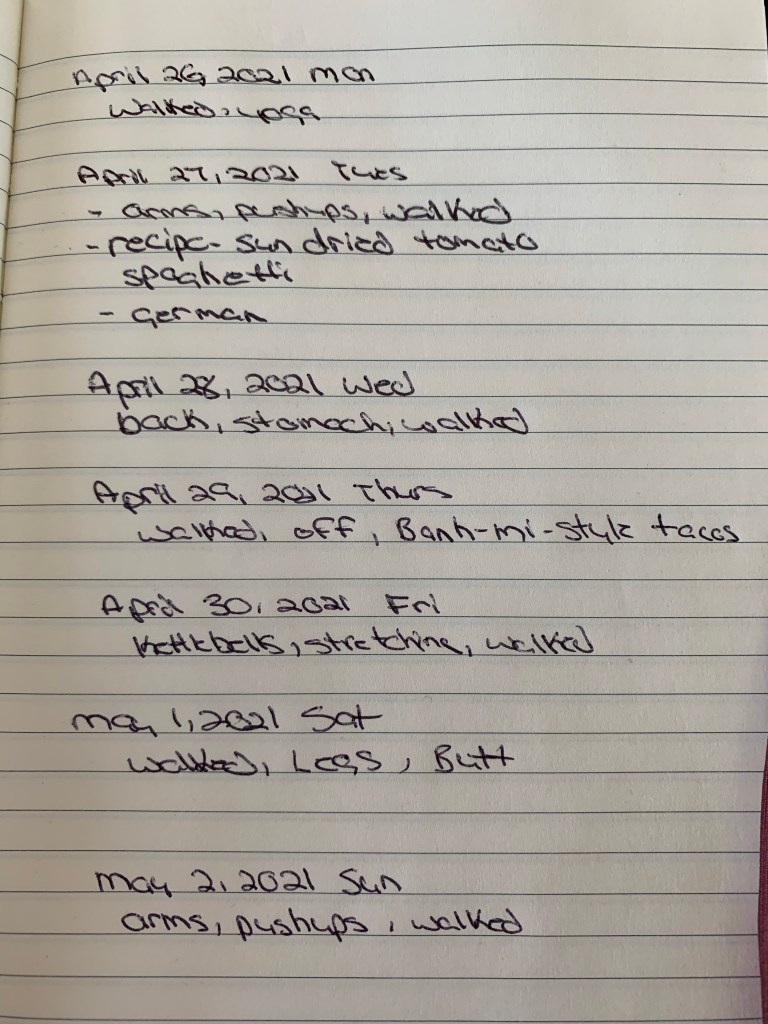 April 26, 2021 mon
walked, yoga
April 27, 2021 Tues
- arms, pushups, walked
- recipe - sun dried tomato
spaghetti
- German
April 28, 2021 Wed
back, stomach, walked
April 29, 2021 Thurs
walked, off, Banh-mi-style tacos
April 30, 2021 Fri
kettlebells, stretching, walked
may 1, 2021 Sat
walked, Legs, Butt
may 2, 2021 Sun
arms, pushups, walked